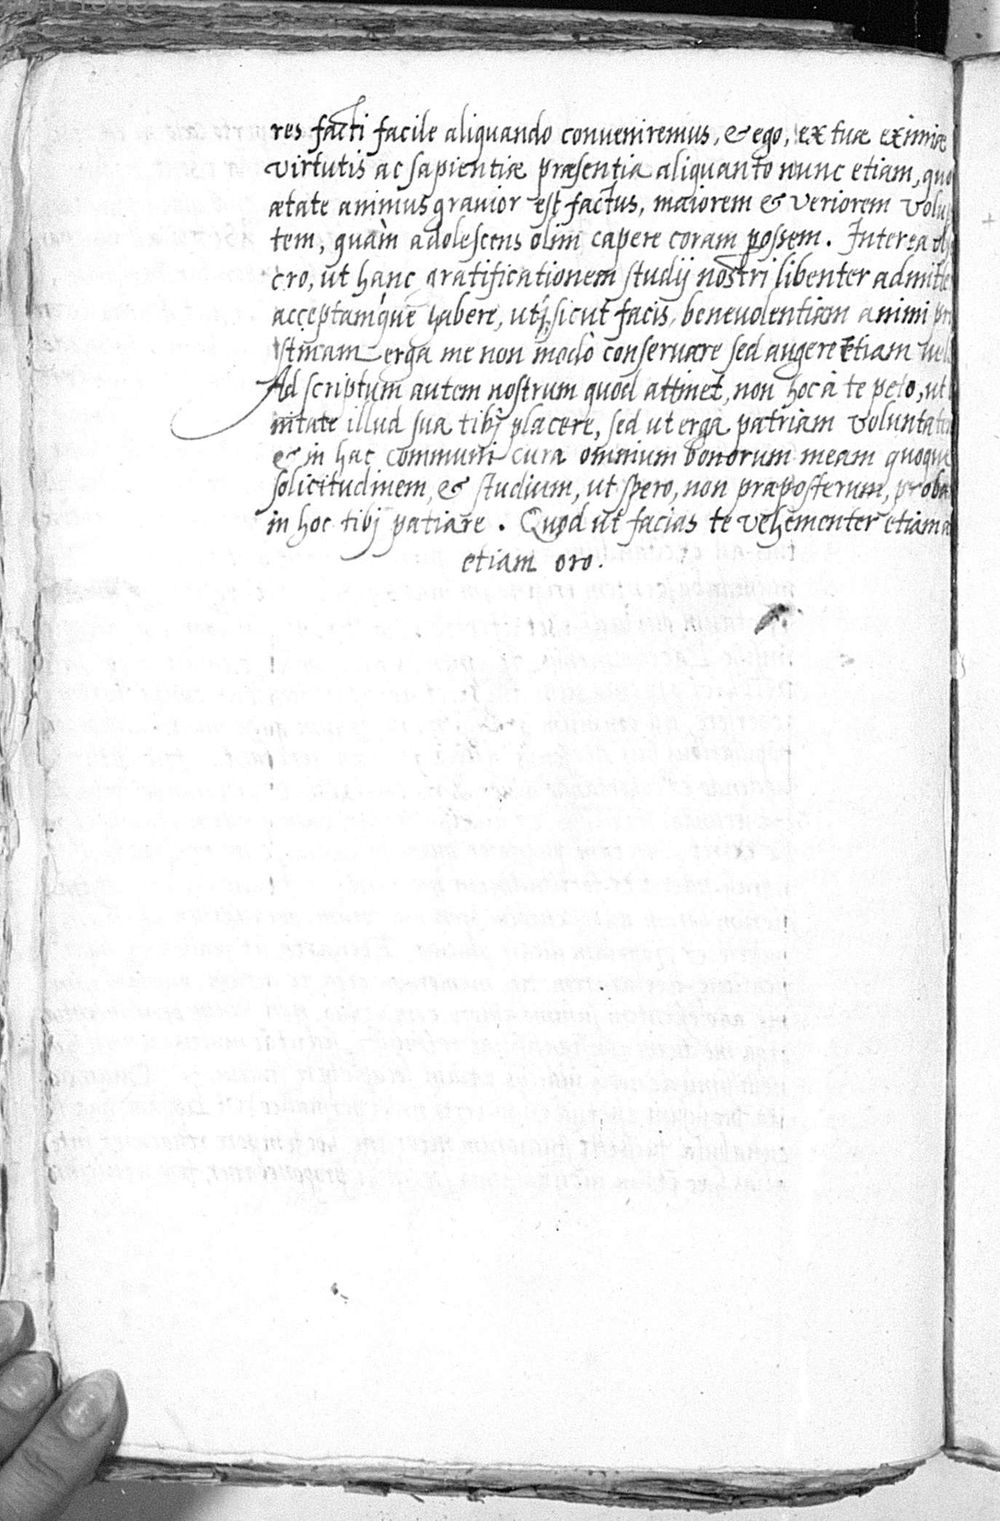 res facti facile aliquando conveniremus, & ego, ex tuæ eximiæ
virtutis ac sapientiæ præsentia aliquanto nunc etiam, quo
ætate animus gravior est factus, maiorem & veriorem volup
tem, quàm adolescens olim capere coram possem. Interea
cro, ut hanc gratificationem studij nostri libenter admitte
acceptamque habere, utq sicut facis, benevolentiam animi pri
stinam erga me non modò conservare sed augere etiam vel
Ad scriptum autem nostrum quod attinet, non hoc à te peto, ut
nitate illud sua tibj placere, sed ut erga patriam voluntatem
& in hac communi cura omnium bonorum meam quoque
solicitudinem, & studium, ut spero, non præposterum, proba
in hoc tibj patiare. Quod ut facias te vehementer etiam a
etiam oro.